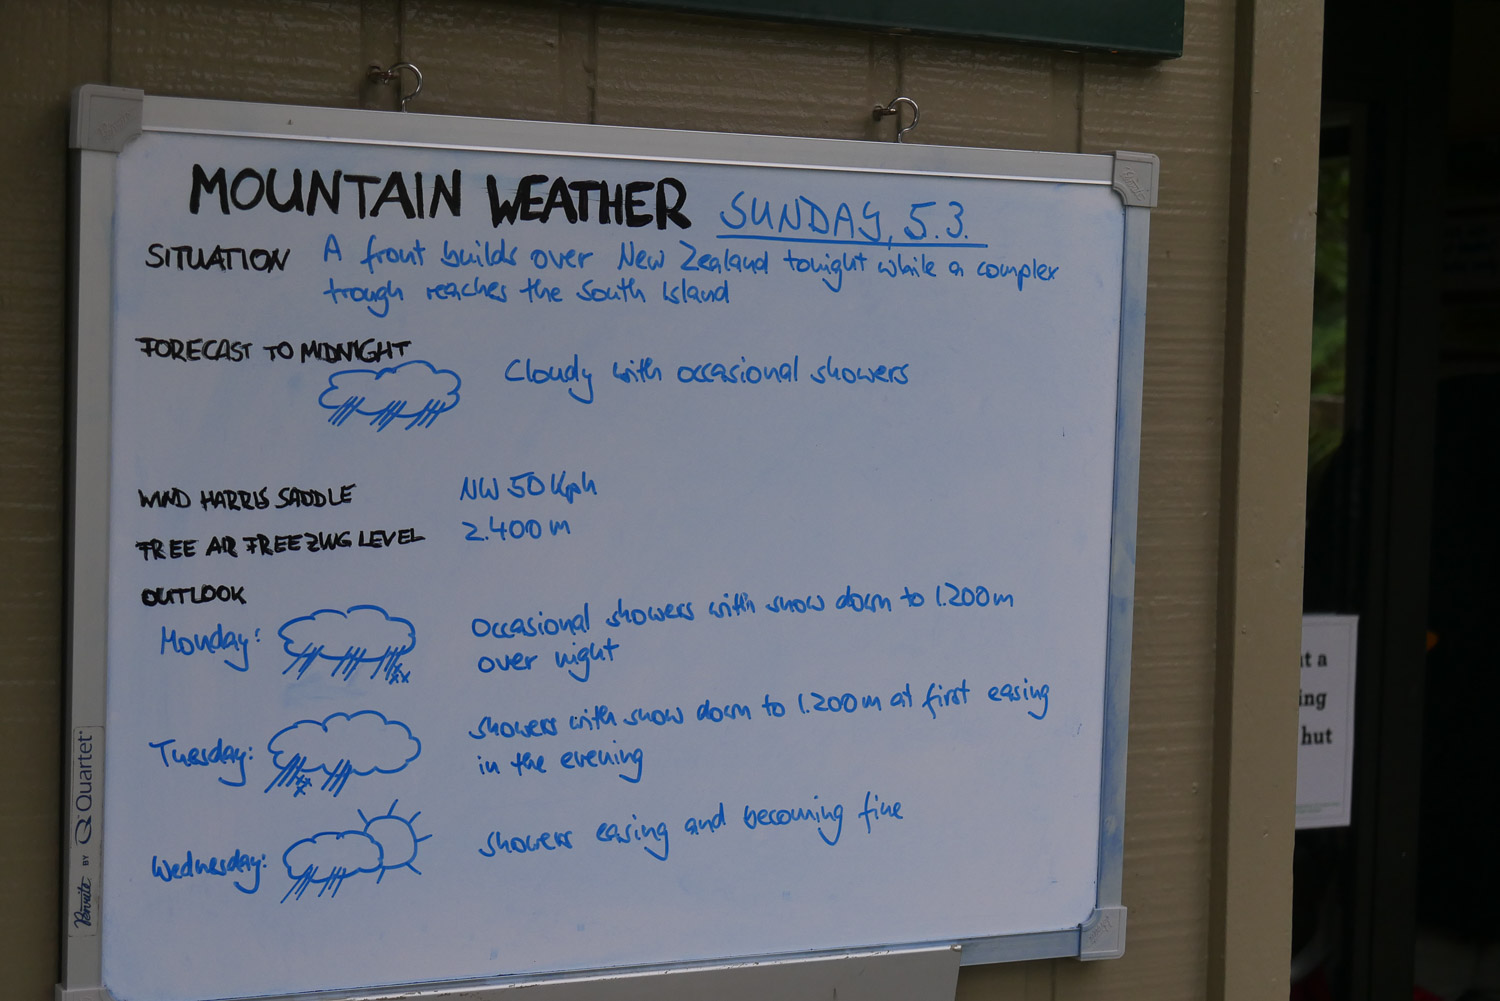 MOUNTAIN WEATHER SUNDAY, 5.3.
SITUATION A front builds over New Zealand tonight while a complex
trough reaches the South Island
FORECAST TO MIDNIGHT
Cloudy with occasional showers
WIND HARRIS SADDLE NW 50 Kph
FREE AIR FREEZING LEVEL 2.400 m
OUTLOOK
Monday: Occasional showers with snow down to 1.200m
over night
Tuesday: showers with snow down to 1.200m at first easing
in the evening
Wednesday: showers easing and becoming fine
Penrite BY Quartet
t a
ing
hut